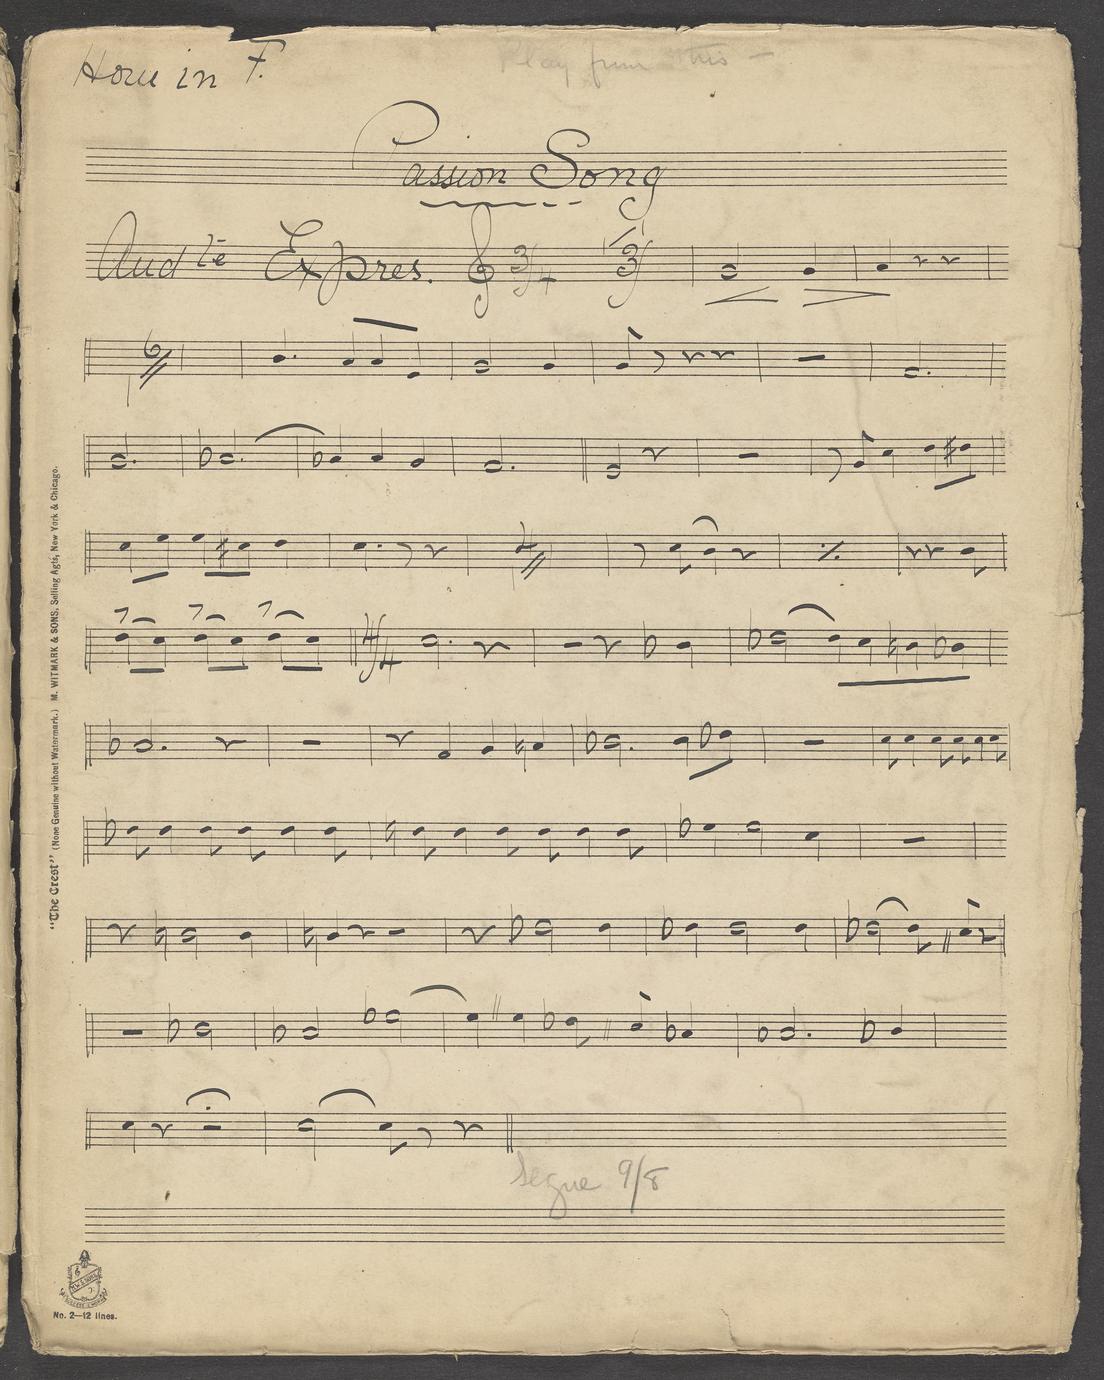 Horn in F.
Play from this —
Passion Song
Andte Expres. 3/4 3
6
2
4/4
Segue 9/8
"The Crest" (None Genuine without Watermark.) M. WITMARK & SONS, Selling Agts, New York & Chicago.
No. 2—12 lines.